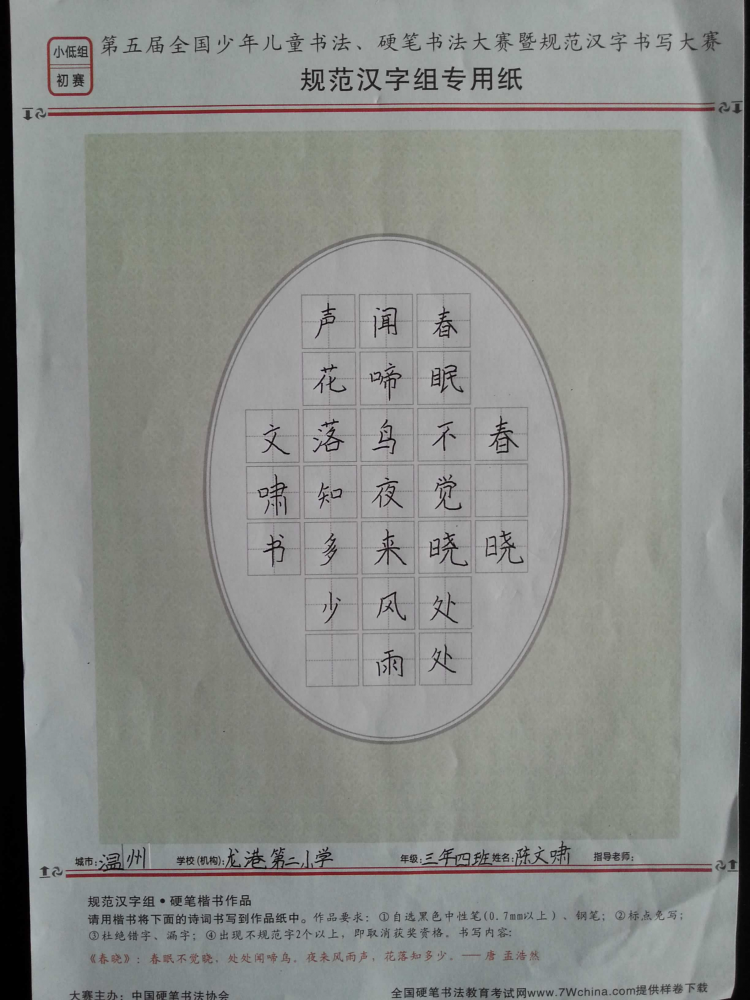 小低组
初赛
第五届全国少年儿童书法、硬笔书法大赛暨规范汉字书写大赛
规范汉字组专用纸
春晓
春眠不觉晓处处
闻啼鸟夜来风雨
声花落知多少
文啸书
城市:温州 学校(机构):龙港第二小学 年级:三年四班 姓名:陈文啸 指导老师:
规范汉字组·硬笔楷书作品
请用楷书将下面的诗词书写到作品纸中。作品要求:①自选黑色中性笔(0.7mm以上)、钢笔;②标点免写;
③杜绝错字、漏字;④出现不规范字2个以上,即取消获奖资格。书写内容:
《春晓》:春眠不觉晓,处处闻啼鸟。夜来风雨声,花落知多少。——唐 孟浩然
大赛主办:中国硬笔书法协会 全国硬笔书法教育考试网www.7Wchina.com提供样卷下载